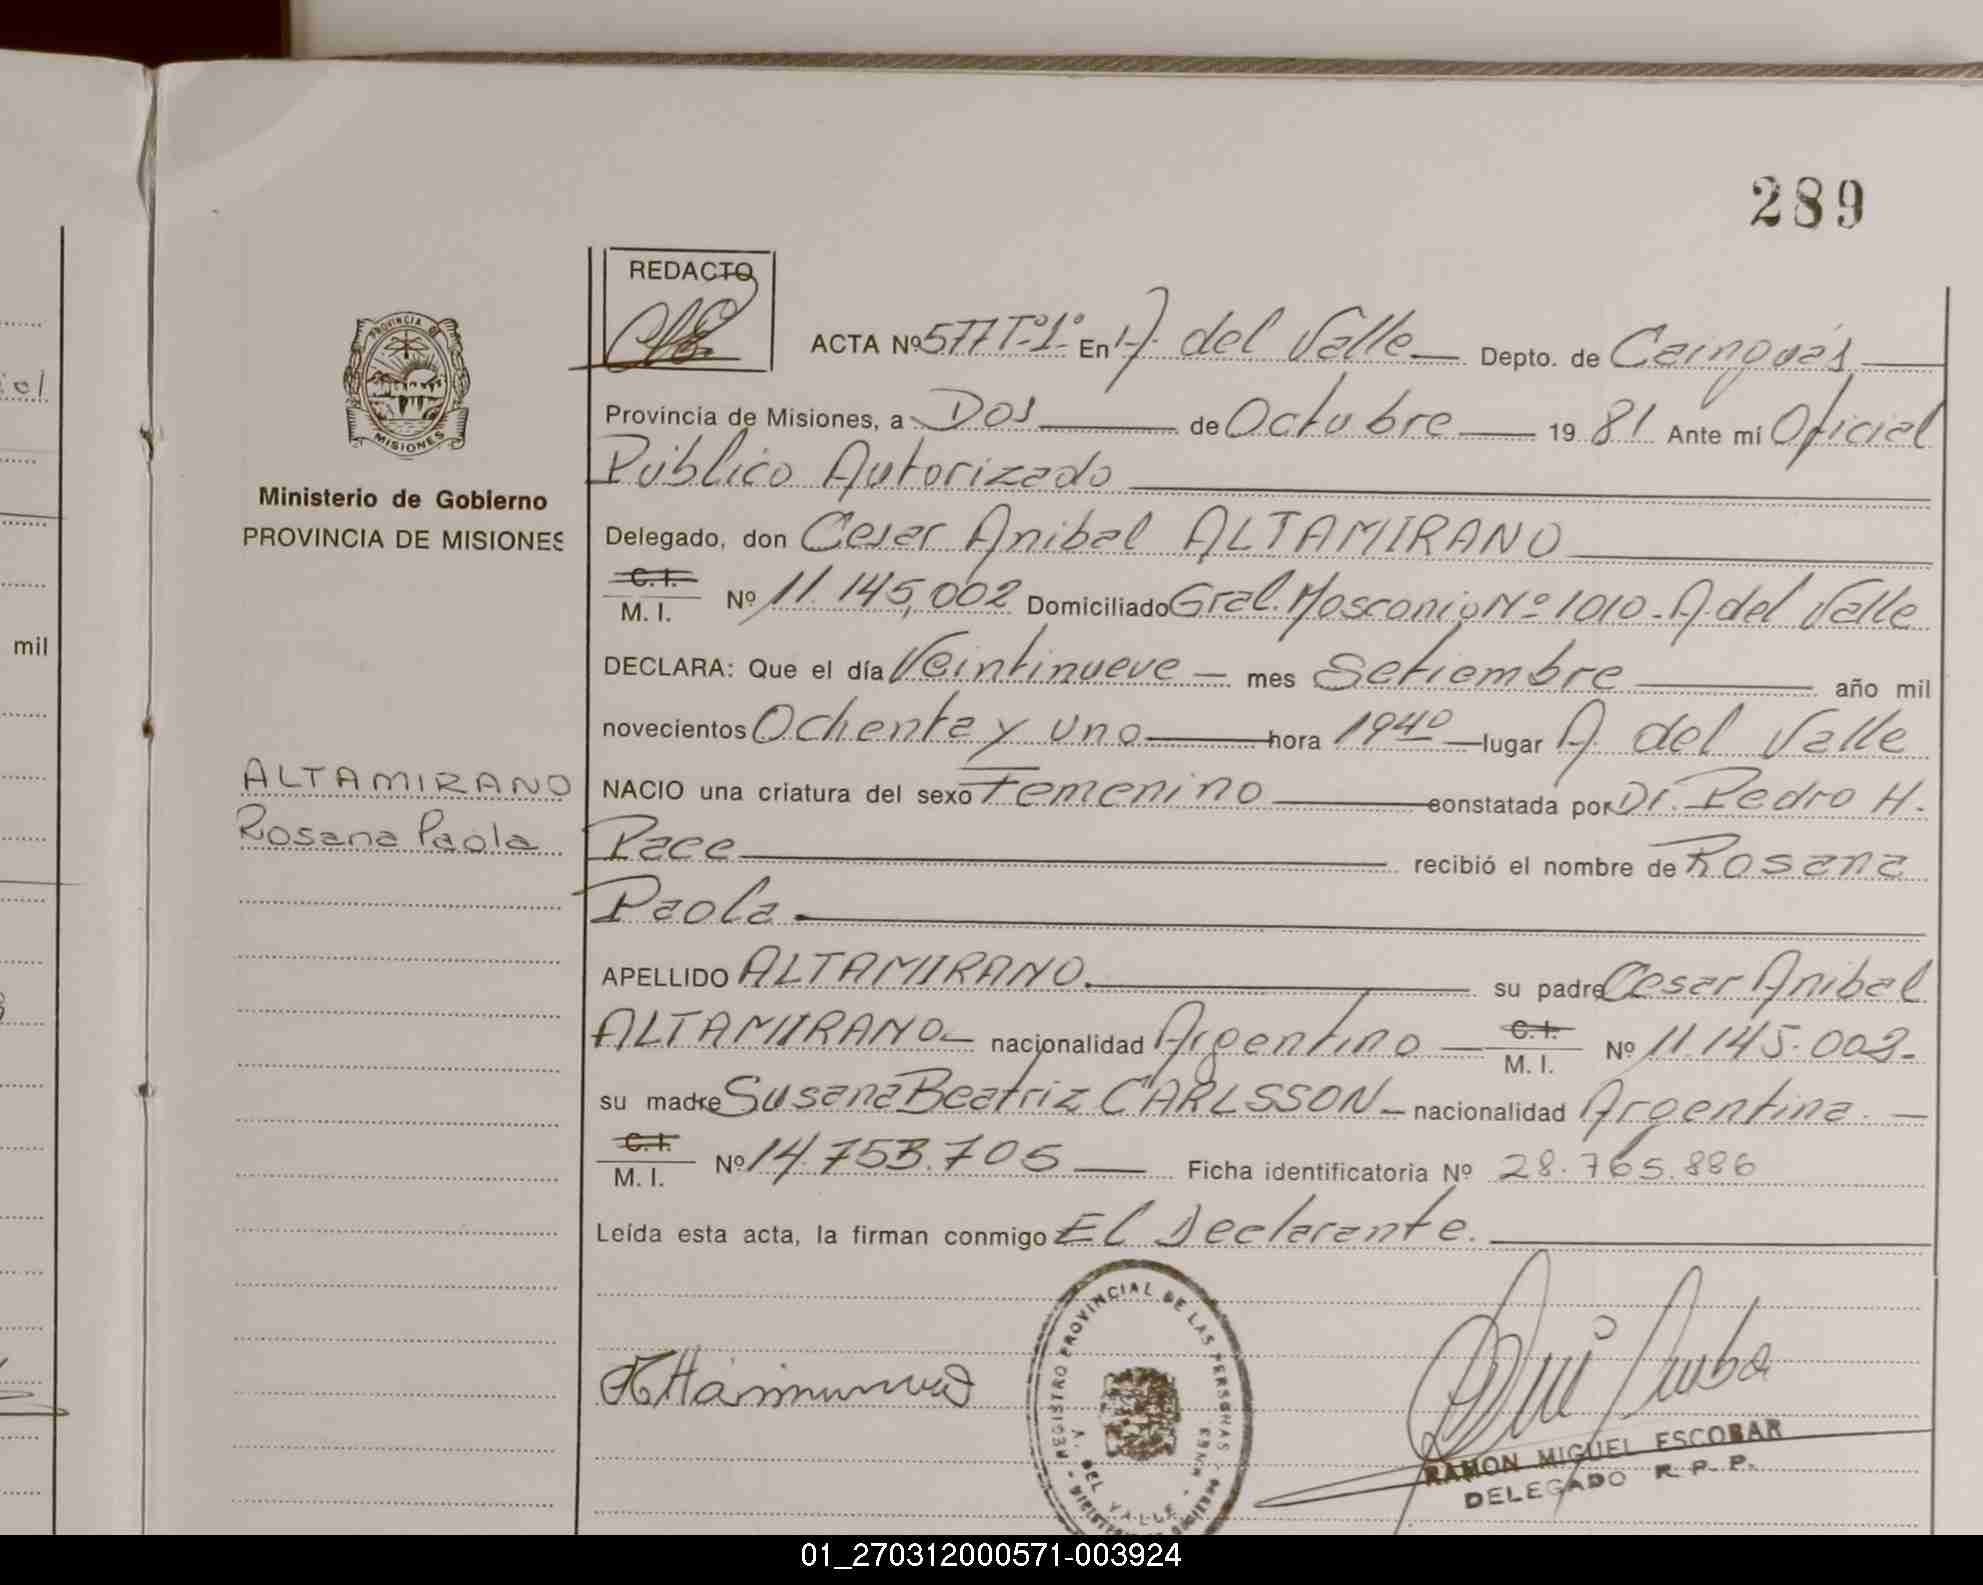 289
REDACTO
ACTA Nº 577 Tº 1º En A. del Valle Depto. de Cainguás
Provincia de Misiones, a Dos de Octubre 19 81 Ante mí Oficial
Público Autorizado
Delegado, don Cesar Anibal ALTAMIRANO
C. I.
M. I. Nº 11.145,002 Domiciliado Gral. Mosconi Nº 1010. A. del Valle
DECLARA: Que el día Veintinueve mes Setiembre año mil
novecientos Ochenta y uno hora 19 40 lugar A. del Valle
NACIO una criatura del sexo Femenino constatada por Dr. Pedro H.
Pace recibió el nombre de Rosana
Paola
APELLIDO ALTAMIRANO su padre Cesar Anibal
ALTAMIRANO nacionalidad Argentino C. I. M. I. Nº 11.145.002
su madre Susana Beatriz CARLSSON nacionalidad Argentina
C. I.
M. I. Nº 14.753.705 Ficha identificatoria Nº 28.765.886
Leída esta acta, la firman conmigo El Declarante.
PROVINCIA DE
MISIONES
Ministerio de Gobierno
PROVINCIA DE MISIONES
ALTAMIRANO
Rosana Paola
mil
REGISTRO PROVINCIAL DE LAS PERSONAS
A. DEL VALLE
RAMON MIGUEL ESCOBAR
DELEGADO R. P. P.
01_270312000571-003924